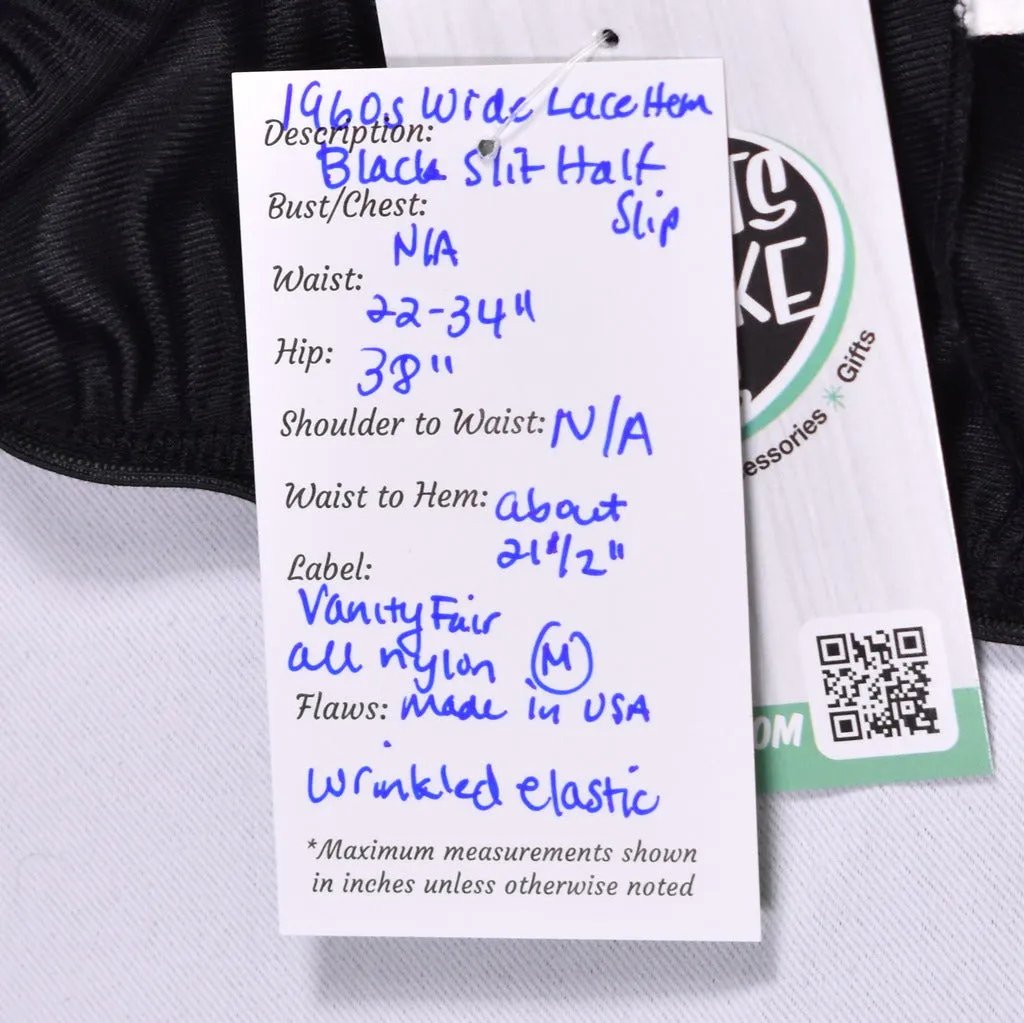 1960s Wide Lace Hem
Description:
Black Slit Half
Slip
Bust/Chest:
N/A
Waist:
22-34"
Hip:
38"
Shoulder to Waist: N/A
Waist to Hem: about
21 1/2"
Label:
Vanity Fair
all nylon M
Flaws: Made in USA
wrinkled elastic
*Maximum measurements shown
in inches unless otherwise noted
Gifts